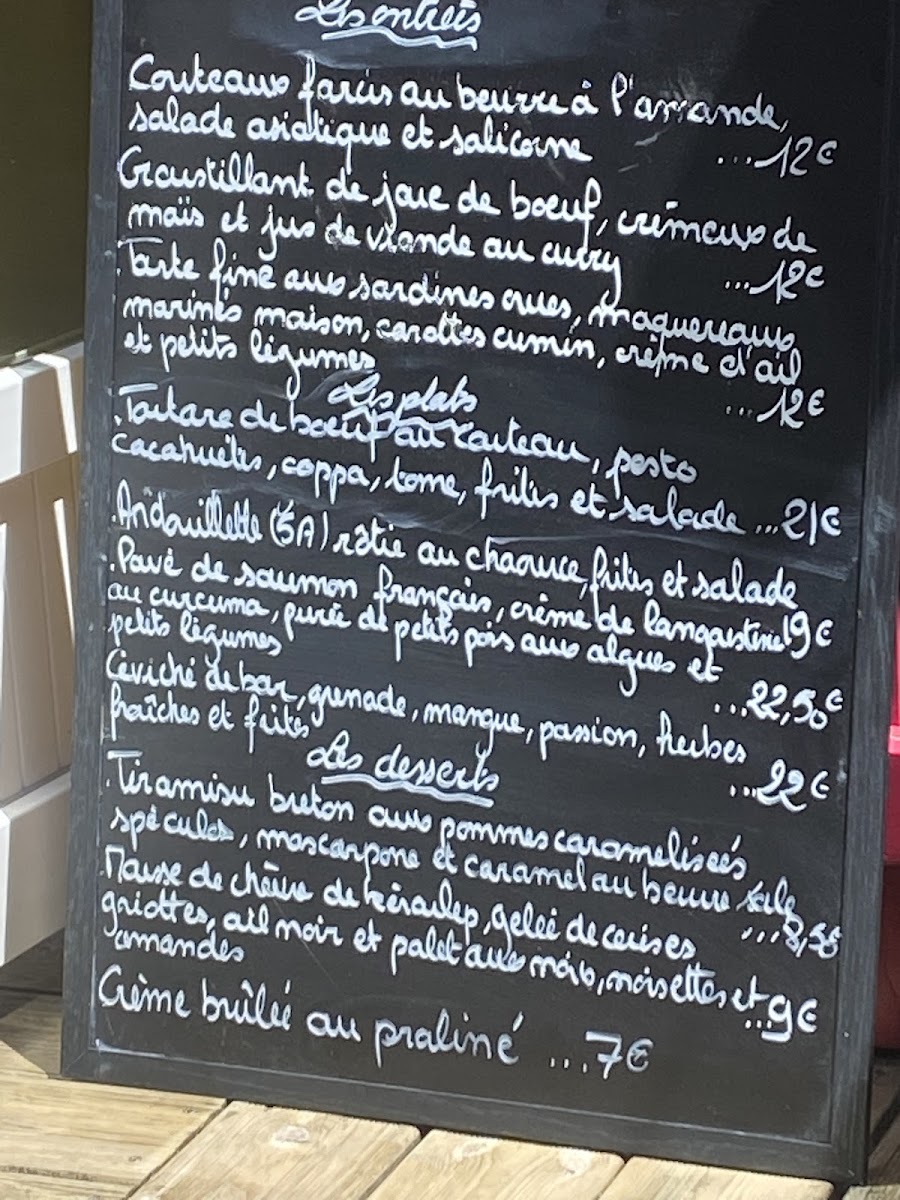 Les entrées
Couteaux farcis au beurre à l'amande,
salade asiatique et salicorne ...12€
Croustillant de joue de boeuf, crémeux de
maïs et jus de viande au curry ...12€
.Tarte fine aux sardines crues, maquereaux
marinés maison, carottes cumin, crème d'ail
et petits légumes ...12€
Les plats
.Tartare de boeuf au couteau, pesto
cacahuètes, coppa, tome, frites et salade ...21€
.Andouillette (5A) rôtie au chaource, frites et salade
19€
.Pavé de saumon français, crème de langoustine
au curcuma, purée de petits pois aux algues et
petits légumes ...22,50€
Céviché de bar, grenade, mangue, passion, herbes
fraîches et frites ...22€
Les desserts
.Tiramisu breton aux pommes caramelisées
spéculos, mascarpone et caramel au beurre salé
...8,50€
.Mousse de chèvre de kéraulep, gelée de cerises
griottes, ail noir et palet aux noix, noisettes et
amandes ...9€
Crème brûlée au praliné ...7€